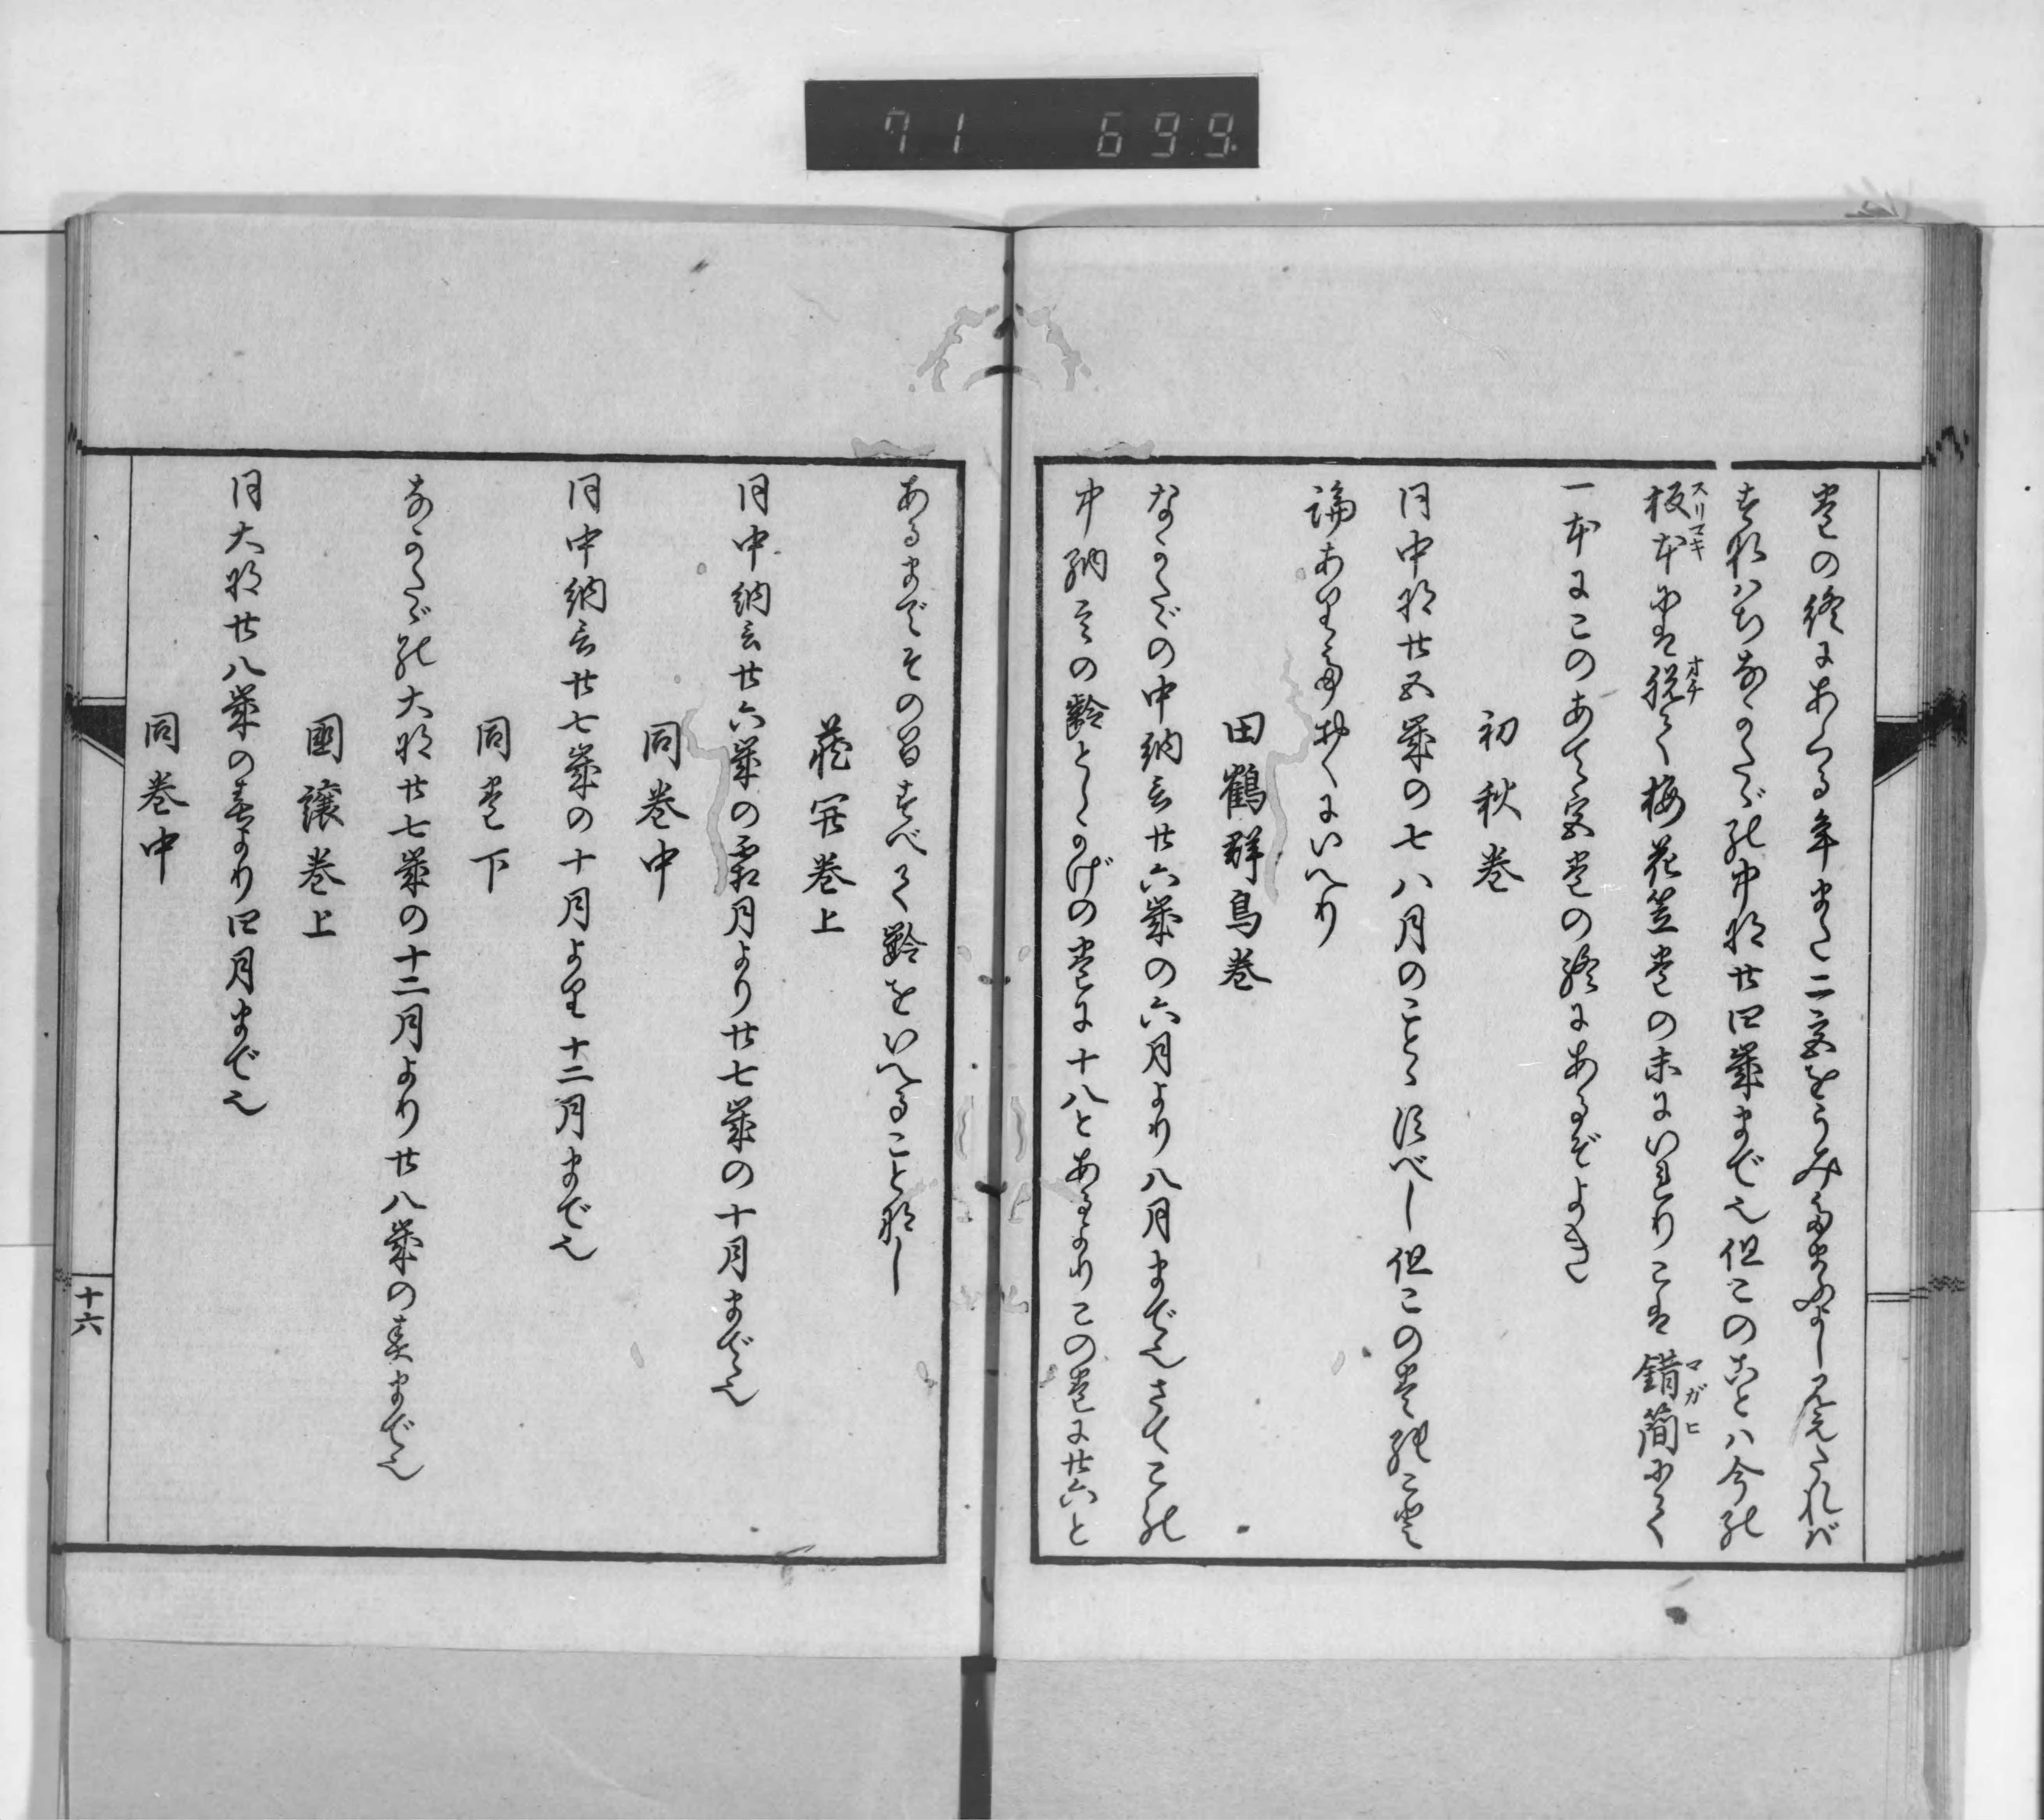 71 699
巻の終にあくる年また二宮をうみたまふよし見えたれば
すなはちなかたゞの中将廿四歳まで也但このことハ今の
板本にハ脱て梅花笠巻の末にいれりこハ錯簡にて
スリマキ
オチ
マガヒ
一本にこのあて宮巻の終にあるぞよき
初秋巻
同中将廿五歳の七八月のことゝ見べし但この巻の
論ありておくにいへり
田鶴群鳥巻
なかたゞの中納言廿六歳の六月より八月まで也さてこの
中納言の齢としかげの巻に十八とあるよりこの巻に廿六と
あるまでその間すべて齢をいへること無し
蔵開巻上
同中納言廿六歳の霜月より廿七歳の十月まで也
同巻中
同中納言廿七歳の十月より十二月まで也
同巻下
なかたゞの大将廿七歳の十二月より廿八歳の春まで也
國譲巻上
同大将廿八歳の春より四月まで也
同巻中
十六